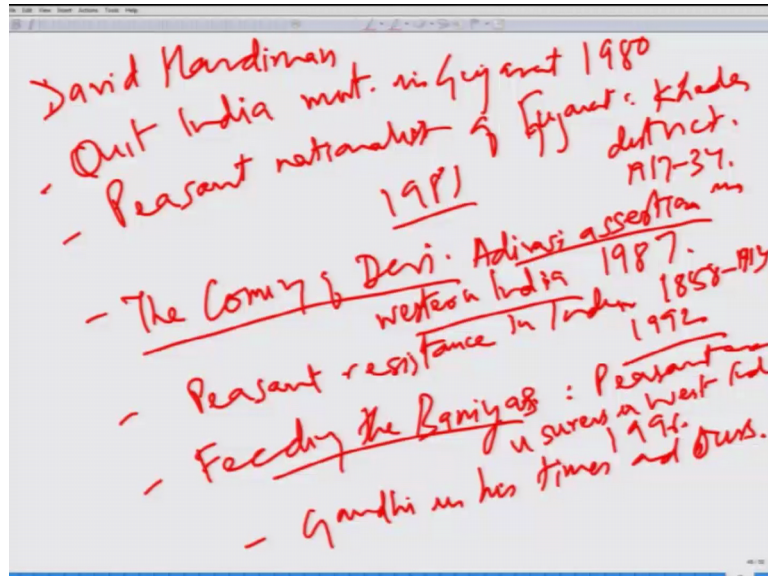 Edit View Insert Actions Tools Help
David Hardiman
- Quit India mnt. in Gujarat 1980
- Peasant nationalist of Gujarat: Kheda
district.
1917-34.
1981
- The Coming of Devi. Adivasi assertion in
western India 1987.
- Peasant resistance in India 1858-
1992
- Feeding the Baniyas : Peasant
usurers in West Ind
199
- Gandhi in his times and ours.